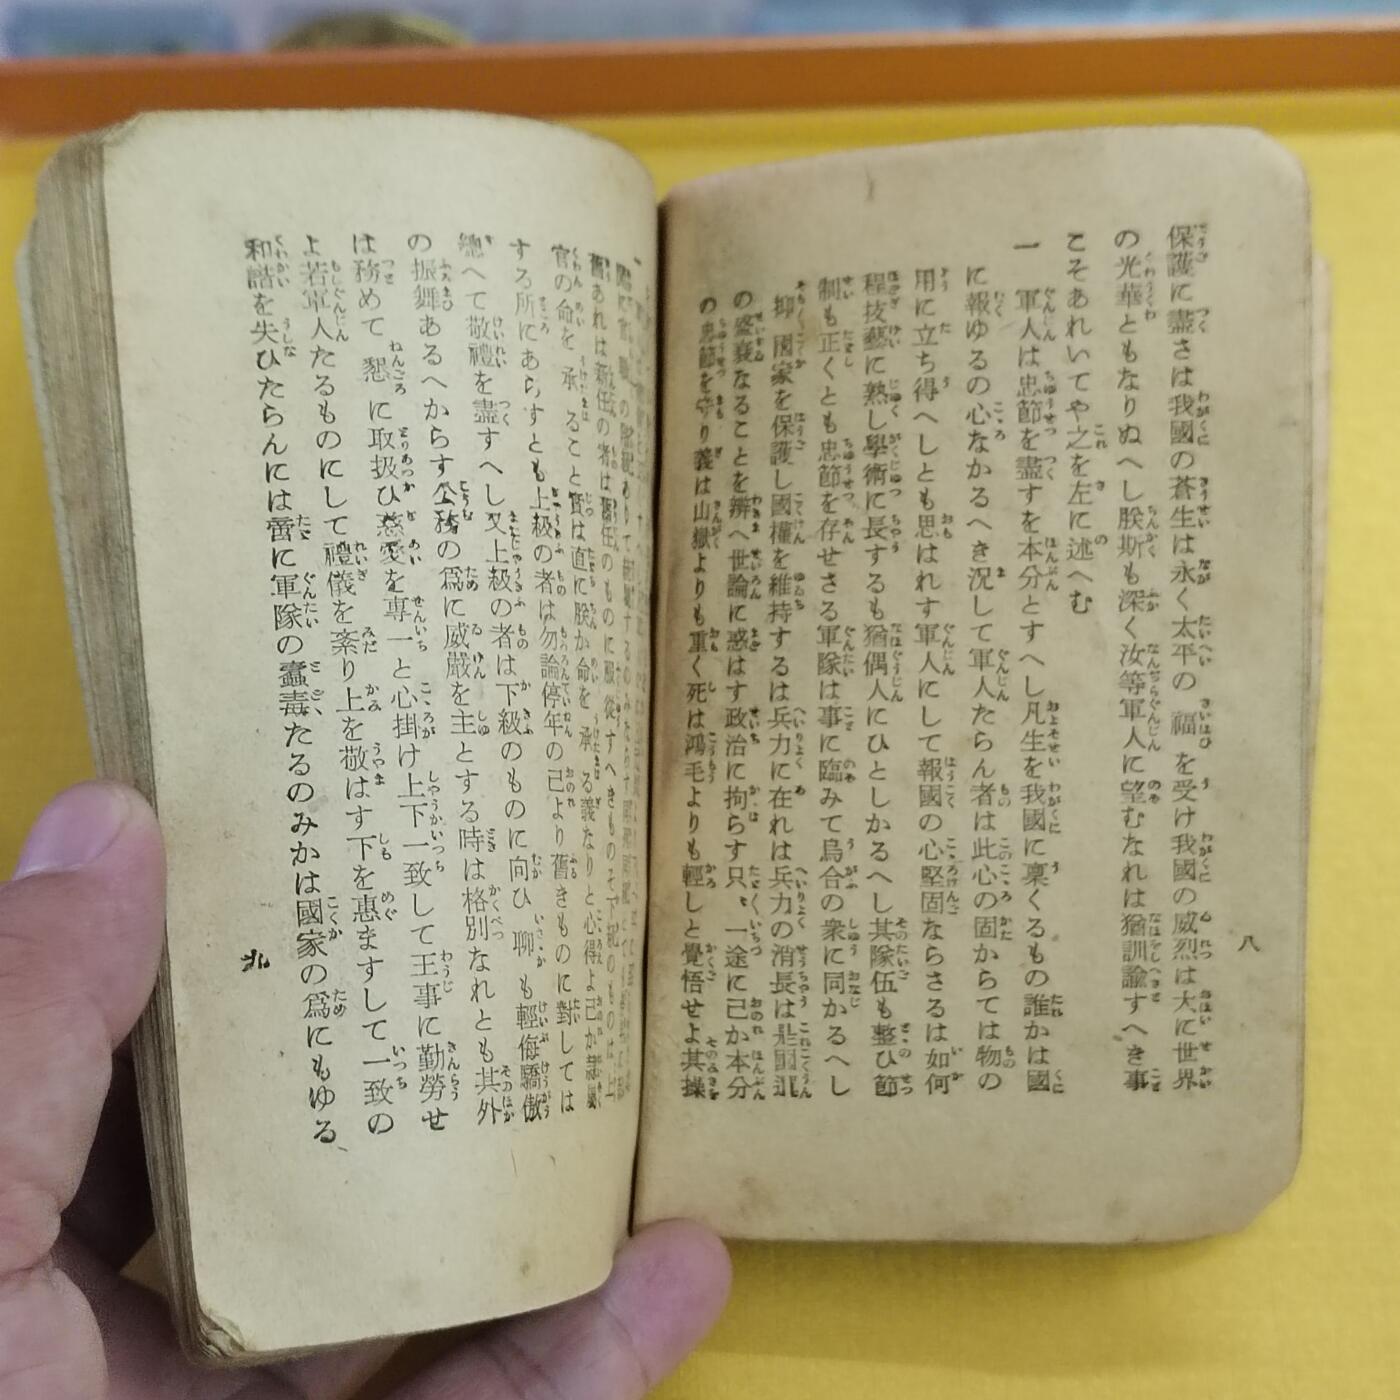 八
保護に盡さは我國の蒼生は永く太平の福を受け我國の威烈は大に世界
の光華ともなりぬへし朕斯も深く汝等軍人に望むなれは猶訓諭すへき事
こそあれいてや之を左に述へむ
一 軍人は忠節を盡すを本分とすへし凡生を我國に稟くるもの誰かは國
に報ゆるの心なかるへき況して軍人たらん者は此心の固からては物の
用に立ち得へしとも思はれす軍人にして報國の心堅固ならさるは如何
程技藝に熟し學術に長するも猶偶人にひとしかるへし其隊伍も整ひ節
制も正くとも忠節を存せさる軍隊は事に臨みて烏合の衆に同かるへし
抑國家を保護し國權を維持するは兵力に在れは兵力の消長は是國運
の盛衰なることを辨へ世論に惑はす政治に拘らす只、一途に己か本分
の忠節を守り義は山嶽よりも重く死は鴻毛よりも輕しと覺悟せよ其操
一
舊あれは新任の者は舊任のものに服從すへきものそ下級のものは上
官の命を承ること實は直に朕か命を承る義なりと心得よ己か隷屬
する所にあらすとも上級の者は勿論停年の己より舊きものに對しては
總へて敬禮を盡すへし又上級の者は下級のものに向ひ聊も輕侮驕傲
の振舞あるへからす公務の爲に威嚴を主とする時は格別なれとも其外
は務めて懇に取扱ひ慈愛を專一と心掛け上下一致して王事に勤勞せ
よ若軍人たるものにして禮儀を紊り上を敬はす下を惠ますして一致の
和諧を失ひたらんには啻に軍隊の蠧毒たるのみかは國家の爲にもゆる
九